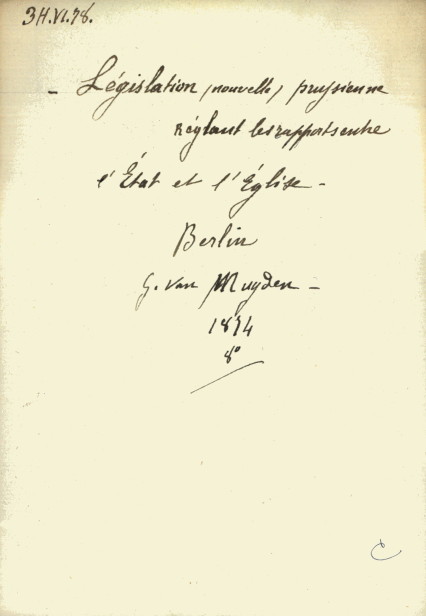 3H.VI.78.
- Législation (nouvelle) prussienne
réglant les rapports entre
l'État et l'Église -
Berlin
G. van Muyden -
1874
8°